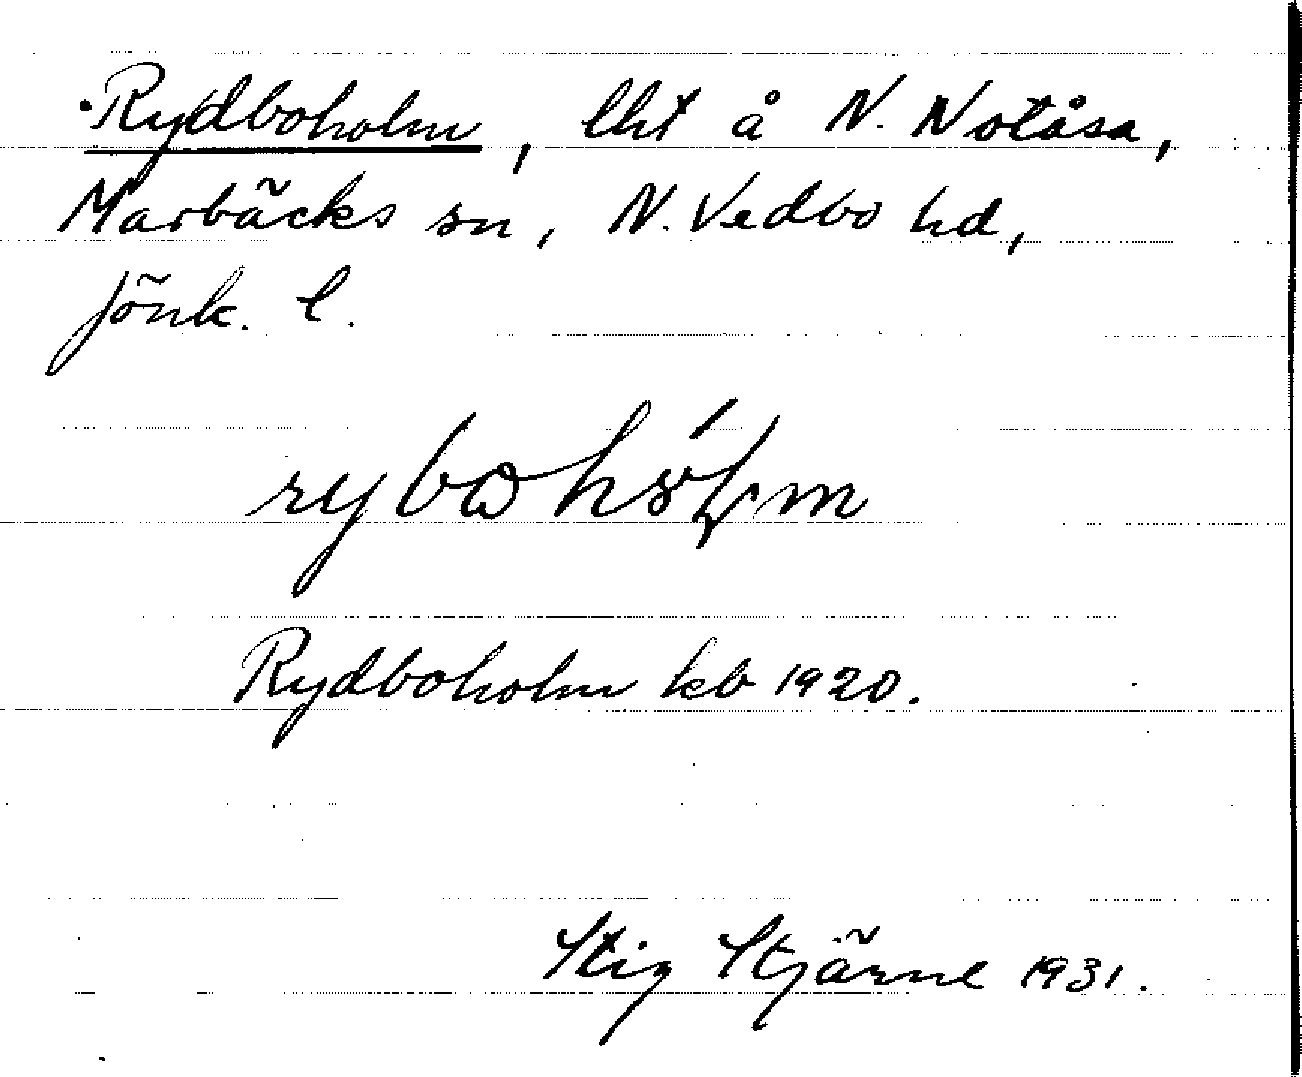 Rydboholm, lht å N. Notåsa,
Marbäcks sn, N. Vedbo hd,
Jönk. l.
Rydboholm kb 1920.
Stig Stjärne 1931.